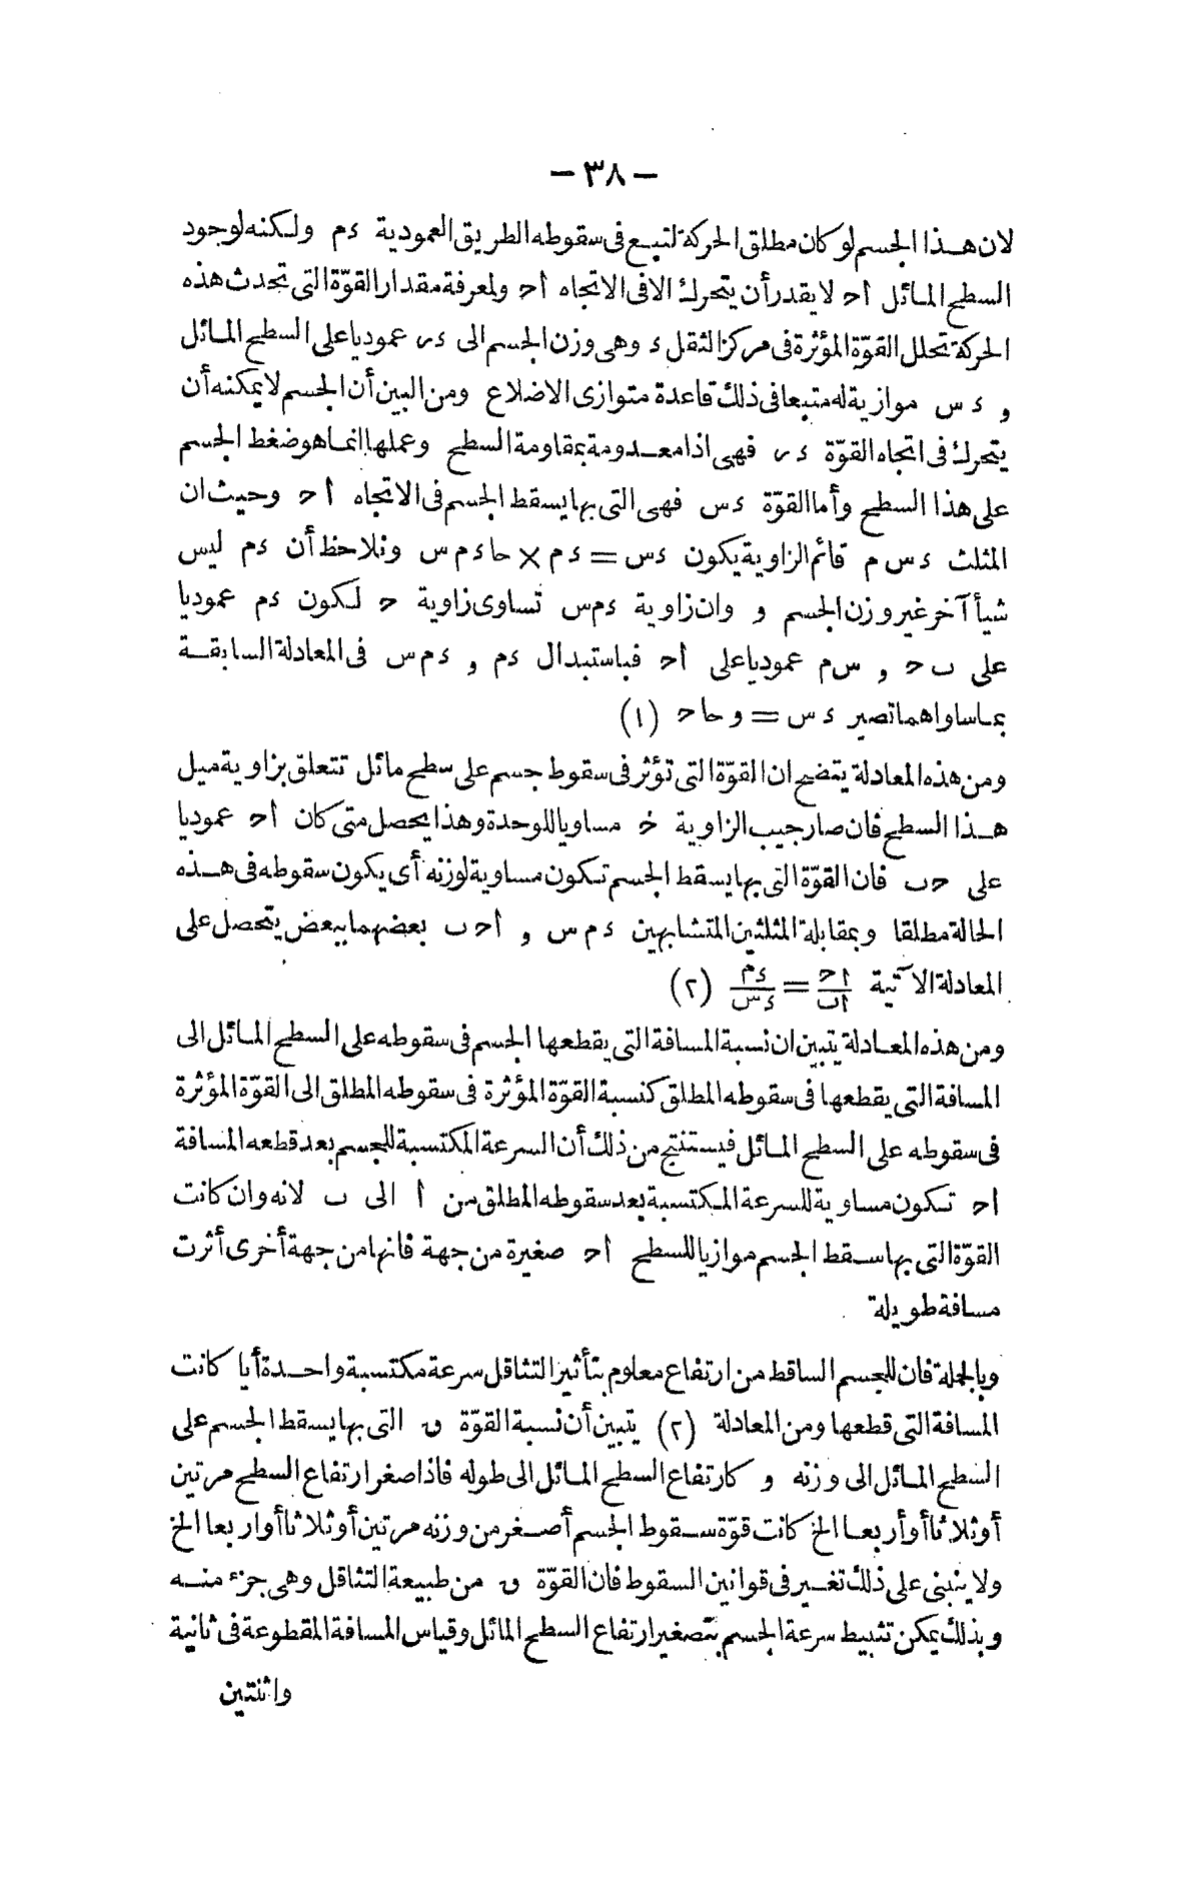 — ٣٨ —
لان هذا الجسم لو كان مطلق الحركة لتبع فى سقوطه الطريق العمودية ءم ولكنه لوجود
السطح المائل أح لا يقدر أن يتحرك الا فى الاتجاه أح ولمعرفة مقدار القوّة التى تحدث هذه
الحركة تحلل القوّة المؤثرة فى مركز الثقل ء وهى وزن الجسم الى ءر عموديا على السطح المائل
و ءس موازية له متبعا فى ذلك قاعدة متوازى الاضلاع ومن البين أن الجسم لا يمكنه أن
يتحرك فى اتجاه القوّة ءر فهى اذا معدومة بمقاومة السطح وعملها انما هو ضغط الجسم
على هذا السطح وأما القوّة ءس فهى التى بها يسقط الجسم فى الاتجاه أح وحيث ان
المثلث ءس م قائم الزاوية يكون ءس = ءم × حاءم س ونلاحظ أن ءم ليس
شيأ آخر غير وزن الجسم و وان زاوية ءمس تساوى زاوية ح لكون ءم عموديا
على ب ح و س م عموديا على أح فباستبدال ءم و ءم س فى المعادلة السابقة
بما ساواهما تصير ءس = و حا ح (١)
ومن هذه المعادلة يتضح ان القوّة التى تؤثر فى سقوط جسم على سطح مائل تتعلق بزاوية ميل
هذا السطح فان صار جيب الزاوية ح مساويا للوحدة وهذا يحصل متى كان أح عموديا
على ح ب فان القوّة التى بها يسقط الجسم تكون مساوية لوزنه أى يكون سقوطه فى هذه
الحالة مطلقا وبمقابلة المثلثين المتشابهين ءم س و أح ب بعضهما ببعض يتحصل على
المعادلة الآتية أح/أب = ءم/ءس (٢)
ومن هذه المعادلة يتبين ان نسبة المسافة التى يقطعها الجسم فى سقوطه على السطح المائل الى
المسافة التى يقطعها فى سقوطه المطلق كنسبة القوّة المؤثرة فى سقوطه المطلق الى القوّة المؤثرة
فى سقوطه على السطح المائل فيستنتج من ذلك أن السرعة المكتسبة للجسم بعد قطعه المسافة
أح تكون مساوية للسرعة المكتسبة بعد سقوطه المطلق من أ الى ب لانه وان كانت
القوّة التى بها سقط الجسم موازيا للسطح أح صغيرة من جهة فانها من جهة أخرى أثرت
مسافة طويلة
وبالجملة فان للجسم الساقط من ارتفاع معلوم بتأثير التثاقل سرعة مكتسبة واحدة أيا كانت
المسافة التى قطعها ومن المعادلة (٢) يتبين أن نسبة القوّة ق التى بها يسقط الجسم على
السطح المائل الى وزنه و كارتفاع السطح المائل الى طوله فاذا صغر ارتفاع السطح مرتين
أو ثلاثا أو أربعا الخ كانت قوّة سقوط الجسم أصغر من وزنه مرتين أو ثلاثا أو اربعا الخ
ولا ينبنى على ذلك تغيير فى قوانين السقوط فان القوّة ق من طبيعة التثاقل وهى جزء منه
وبذلك يمكن تثبيط سرعة الجسم بتصغير ارتفاع السطح المائل وقياس المسافة المقطوعة فى ثانية
واثنتين